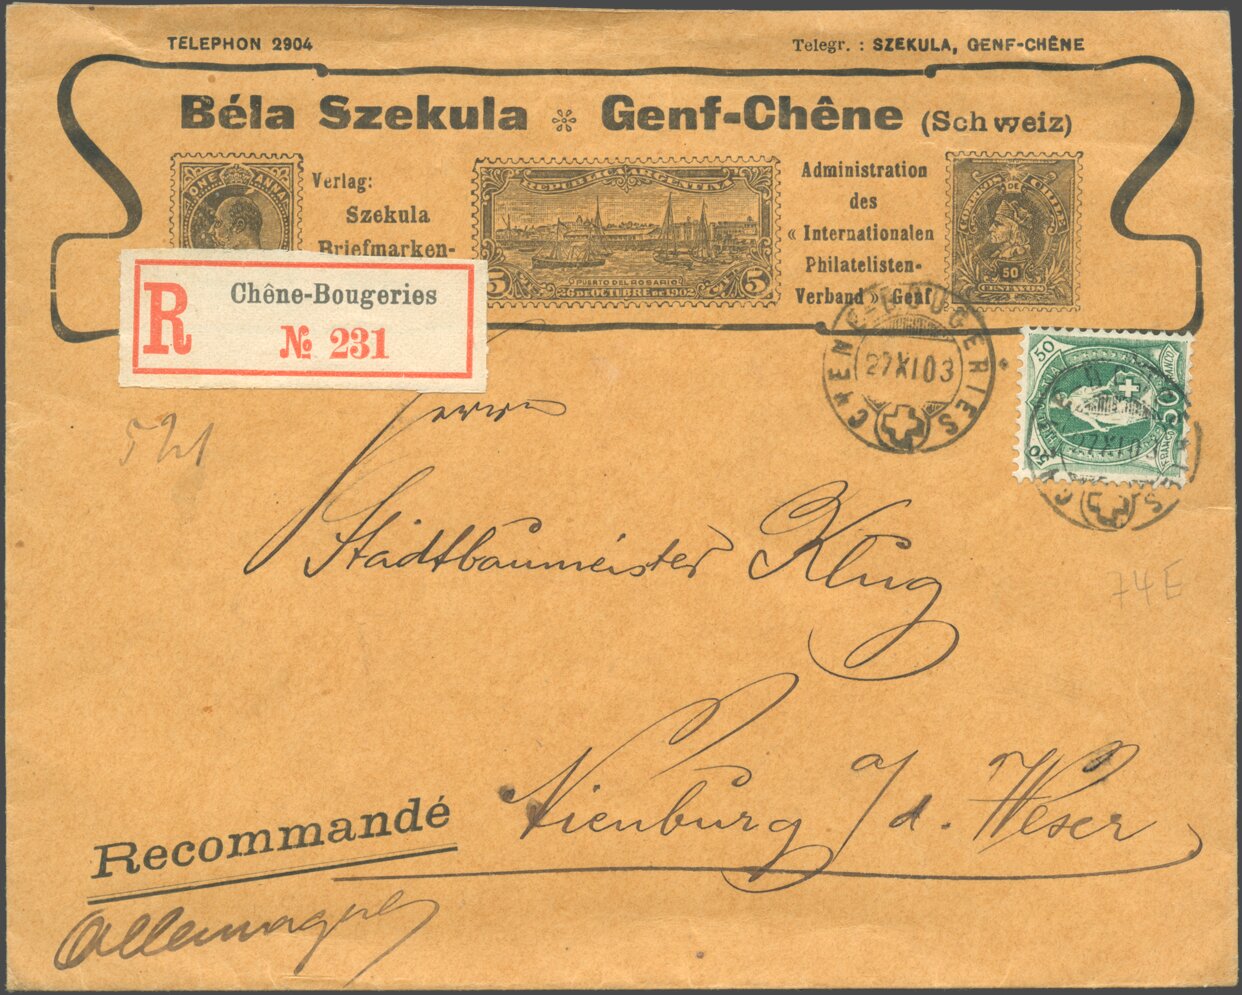 TELEPHON 2904
Telegr. : SZEKULA, GENF-CHÊNE
Béla Szekula Genf-Chêne (Schweiz)
ONE ANNA
Verlag:
Szekula
Briefmarken-
REPUBLICA ARGENTINA
5 5
PUERTO DEL ROSARIO
26 DE OCTUBRE DE 1902
Administration
des
« Internationalen
Philatelisten-
Verband » Genf
CORREOS DE CHILE
50
CENTAVOS
R
Chêne-Bougeries
№ 231
CHÊNE-BOUGERIES
27 XI 03
50
HELVETIA
FRANCO
50
FRANCO
50
27 XI 0
521
Herrn
Stadtbaumeister Klug
74E
Nienburg a/d. Weser
Recommandé
Allemagne